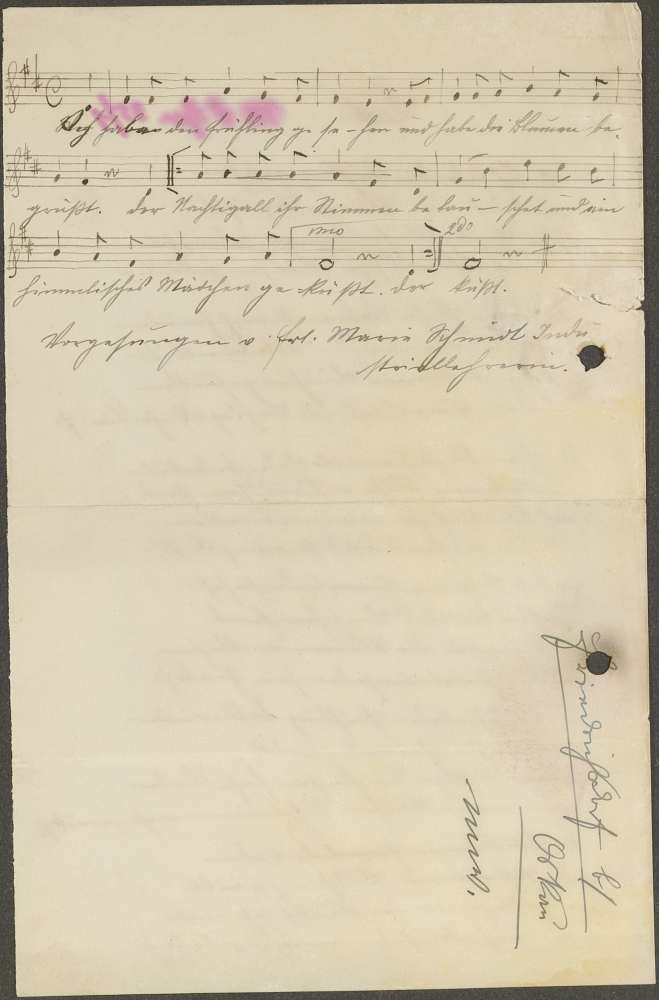 Ich habe den Frühling ge se - hen und habe die Blumen be-
grüßt. Der Nachtigall ihr Stimmen be lau - schet und ein
imo 2do
himmlisches Mädchen ge küßt. der küßt.
Vorgesungen v. Frl. Marie Schmidt Indu
striallehrerin.